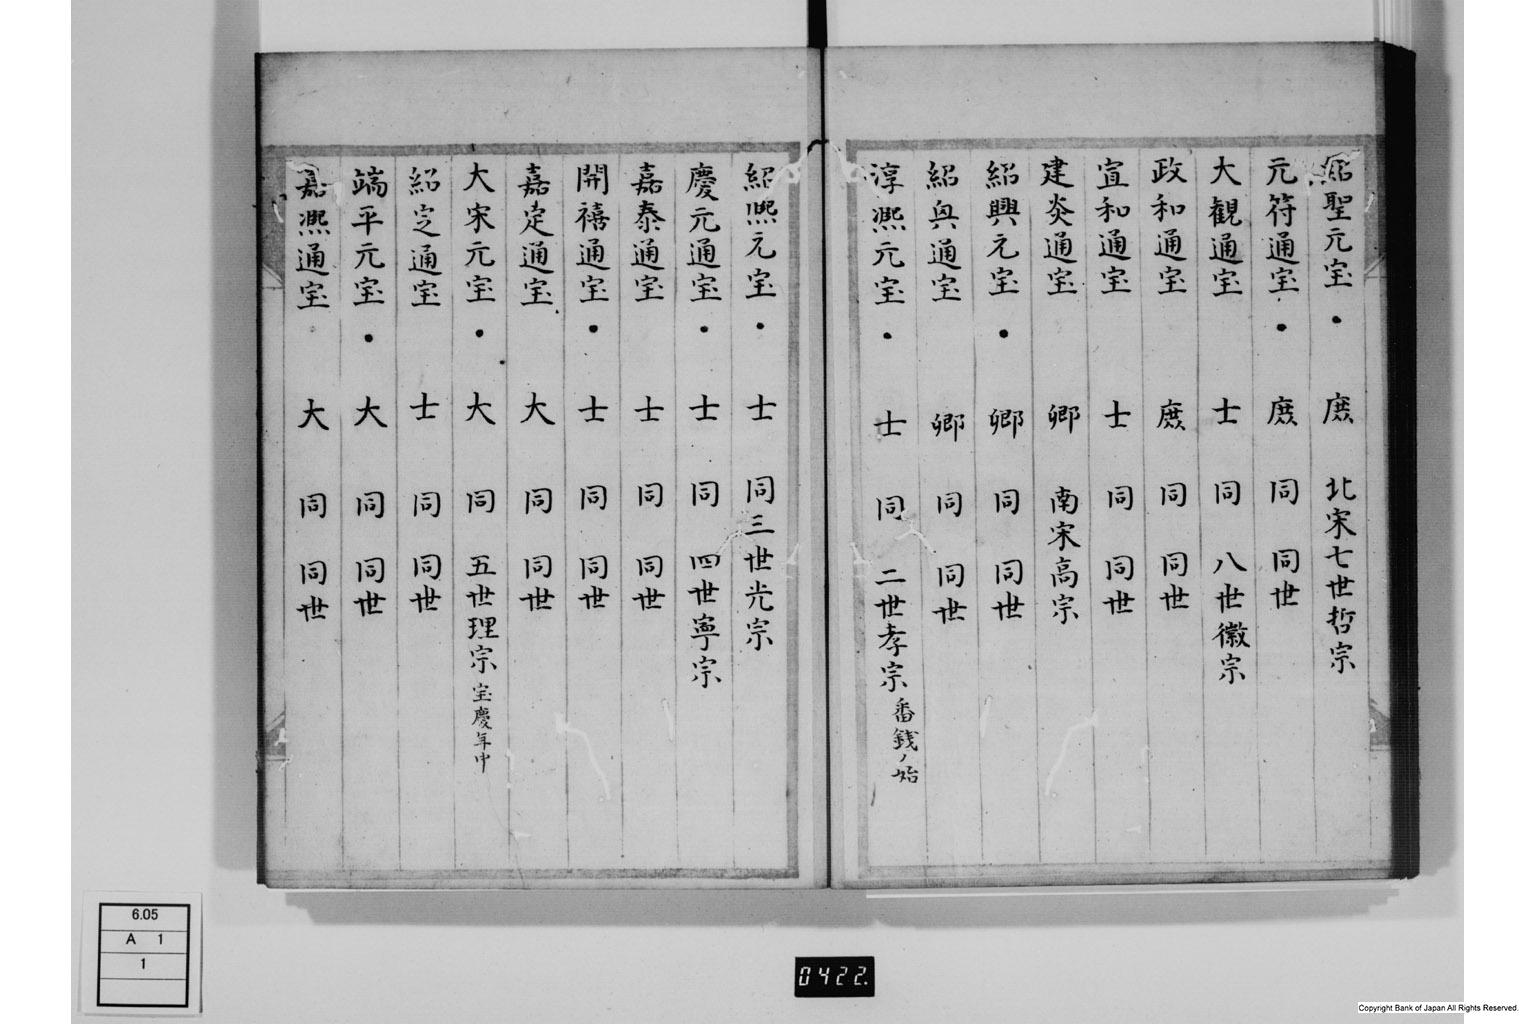 紹聖元宝・　庶　北宋七世哲宗
元符通宝・　庶　同　同世
大観通宝　士　同　八世徽宗
政和通宝　庶　同　同世
宣和通宝　士　同　同世
建炎通宝　卿　南宋高宗
紹興元宝・　卿　同　同世
紹興通宝　卿　同　同世
淳熙元宝・　士　同　二世孝宗　番銭ノ始
紹熙元宝・　士　同三世光宗
慶元通宝・　士　同　四世寧宗
嘉泰通宝　士　同　同世
開禧通宝・　士　同　同世
嘉定通宝　大　同　同世
大宋元宝・　大　同　五世理宗　宝慶年中
紹定通宝　士　同　同世
端平元宝・　大　同　同世
嘉熙通宝　大　同　同世
6.05
A 1
1
0422.
Copyright Bank of Japan All Rights Reserved.